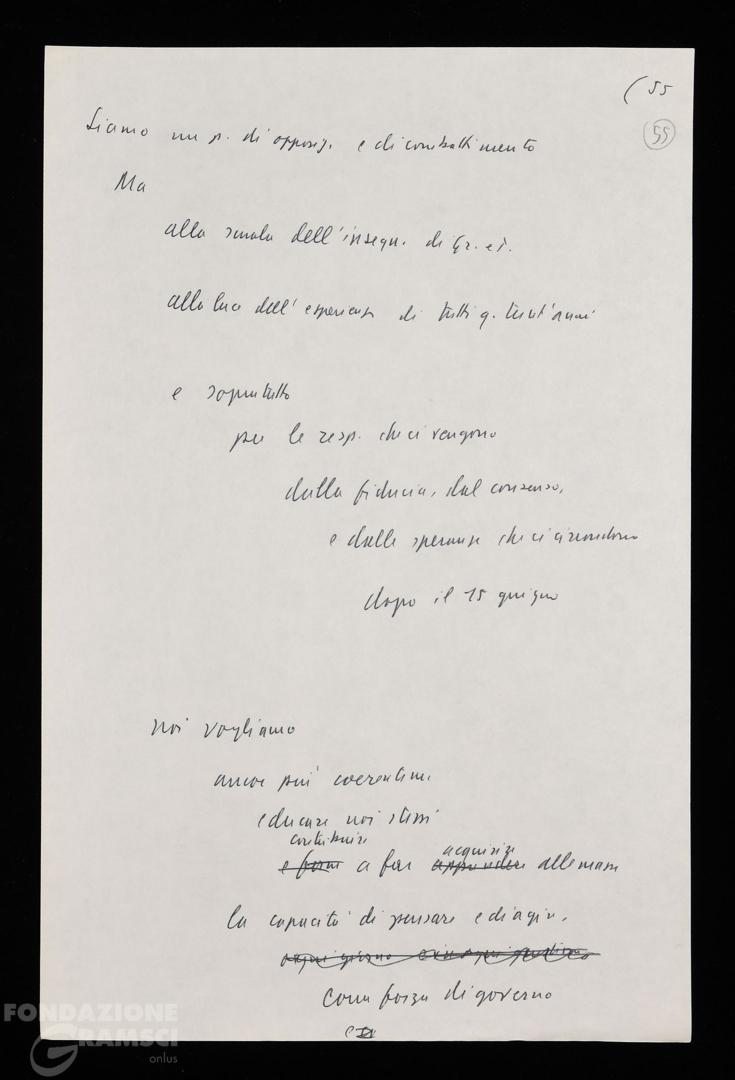 (55
55
Siamo un p. di opposiz. e di combattimento
Ma
alla scuola dell'insegn. di Gr. e T.
alla luce dell'esperienza di tutti q. trent'anni
e soprattutto
per le resp. che ci vengono
dalla fiducia, dal consenso,
e dalle speranze che ci circondano
dopo il 15 giugno
noi vogliamo
ancor più coerentem.
educare noi stessi
contribuire
acquisire
e a far apprendere alle masse
la capacità di pensare e di agire,
ogni giorno e in ogni
come forza di governo
FONDAZIONE
GRAMSCI
onlus